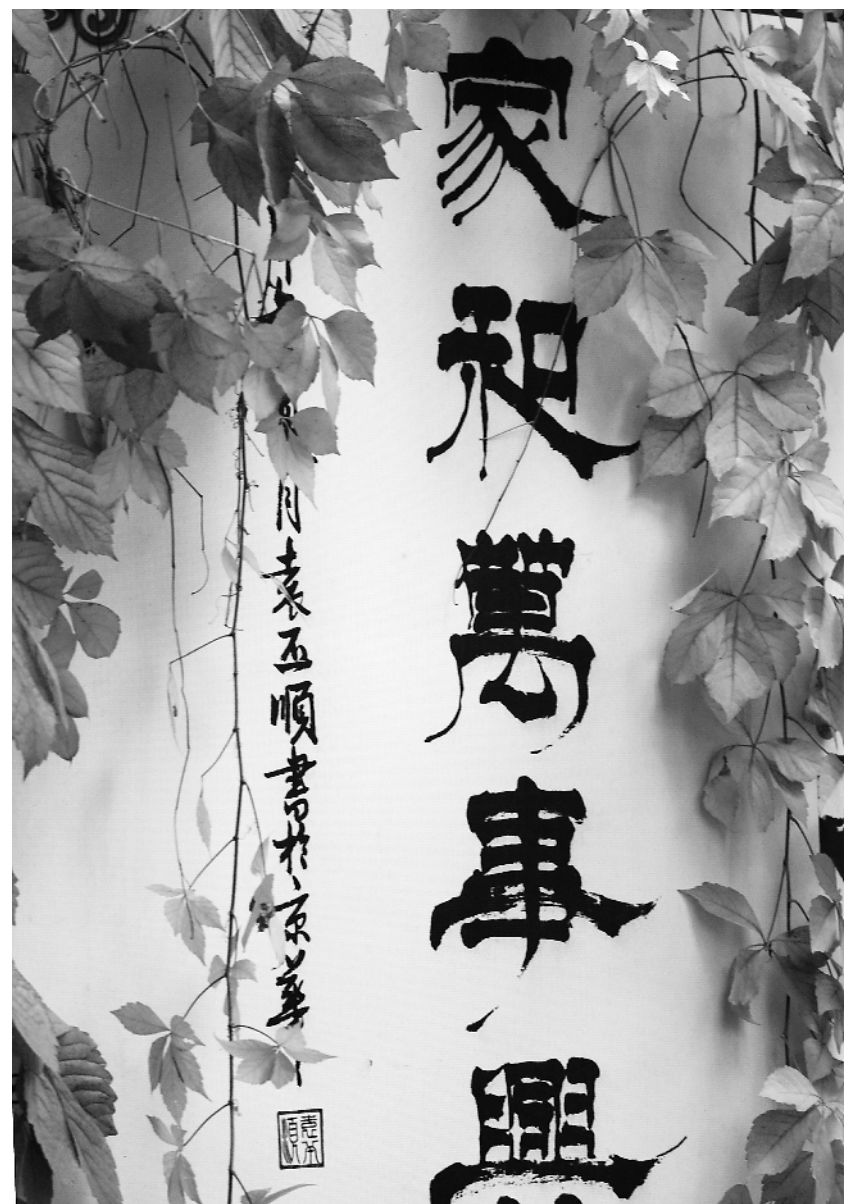 家和萬事興
月袁丕順書於京華